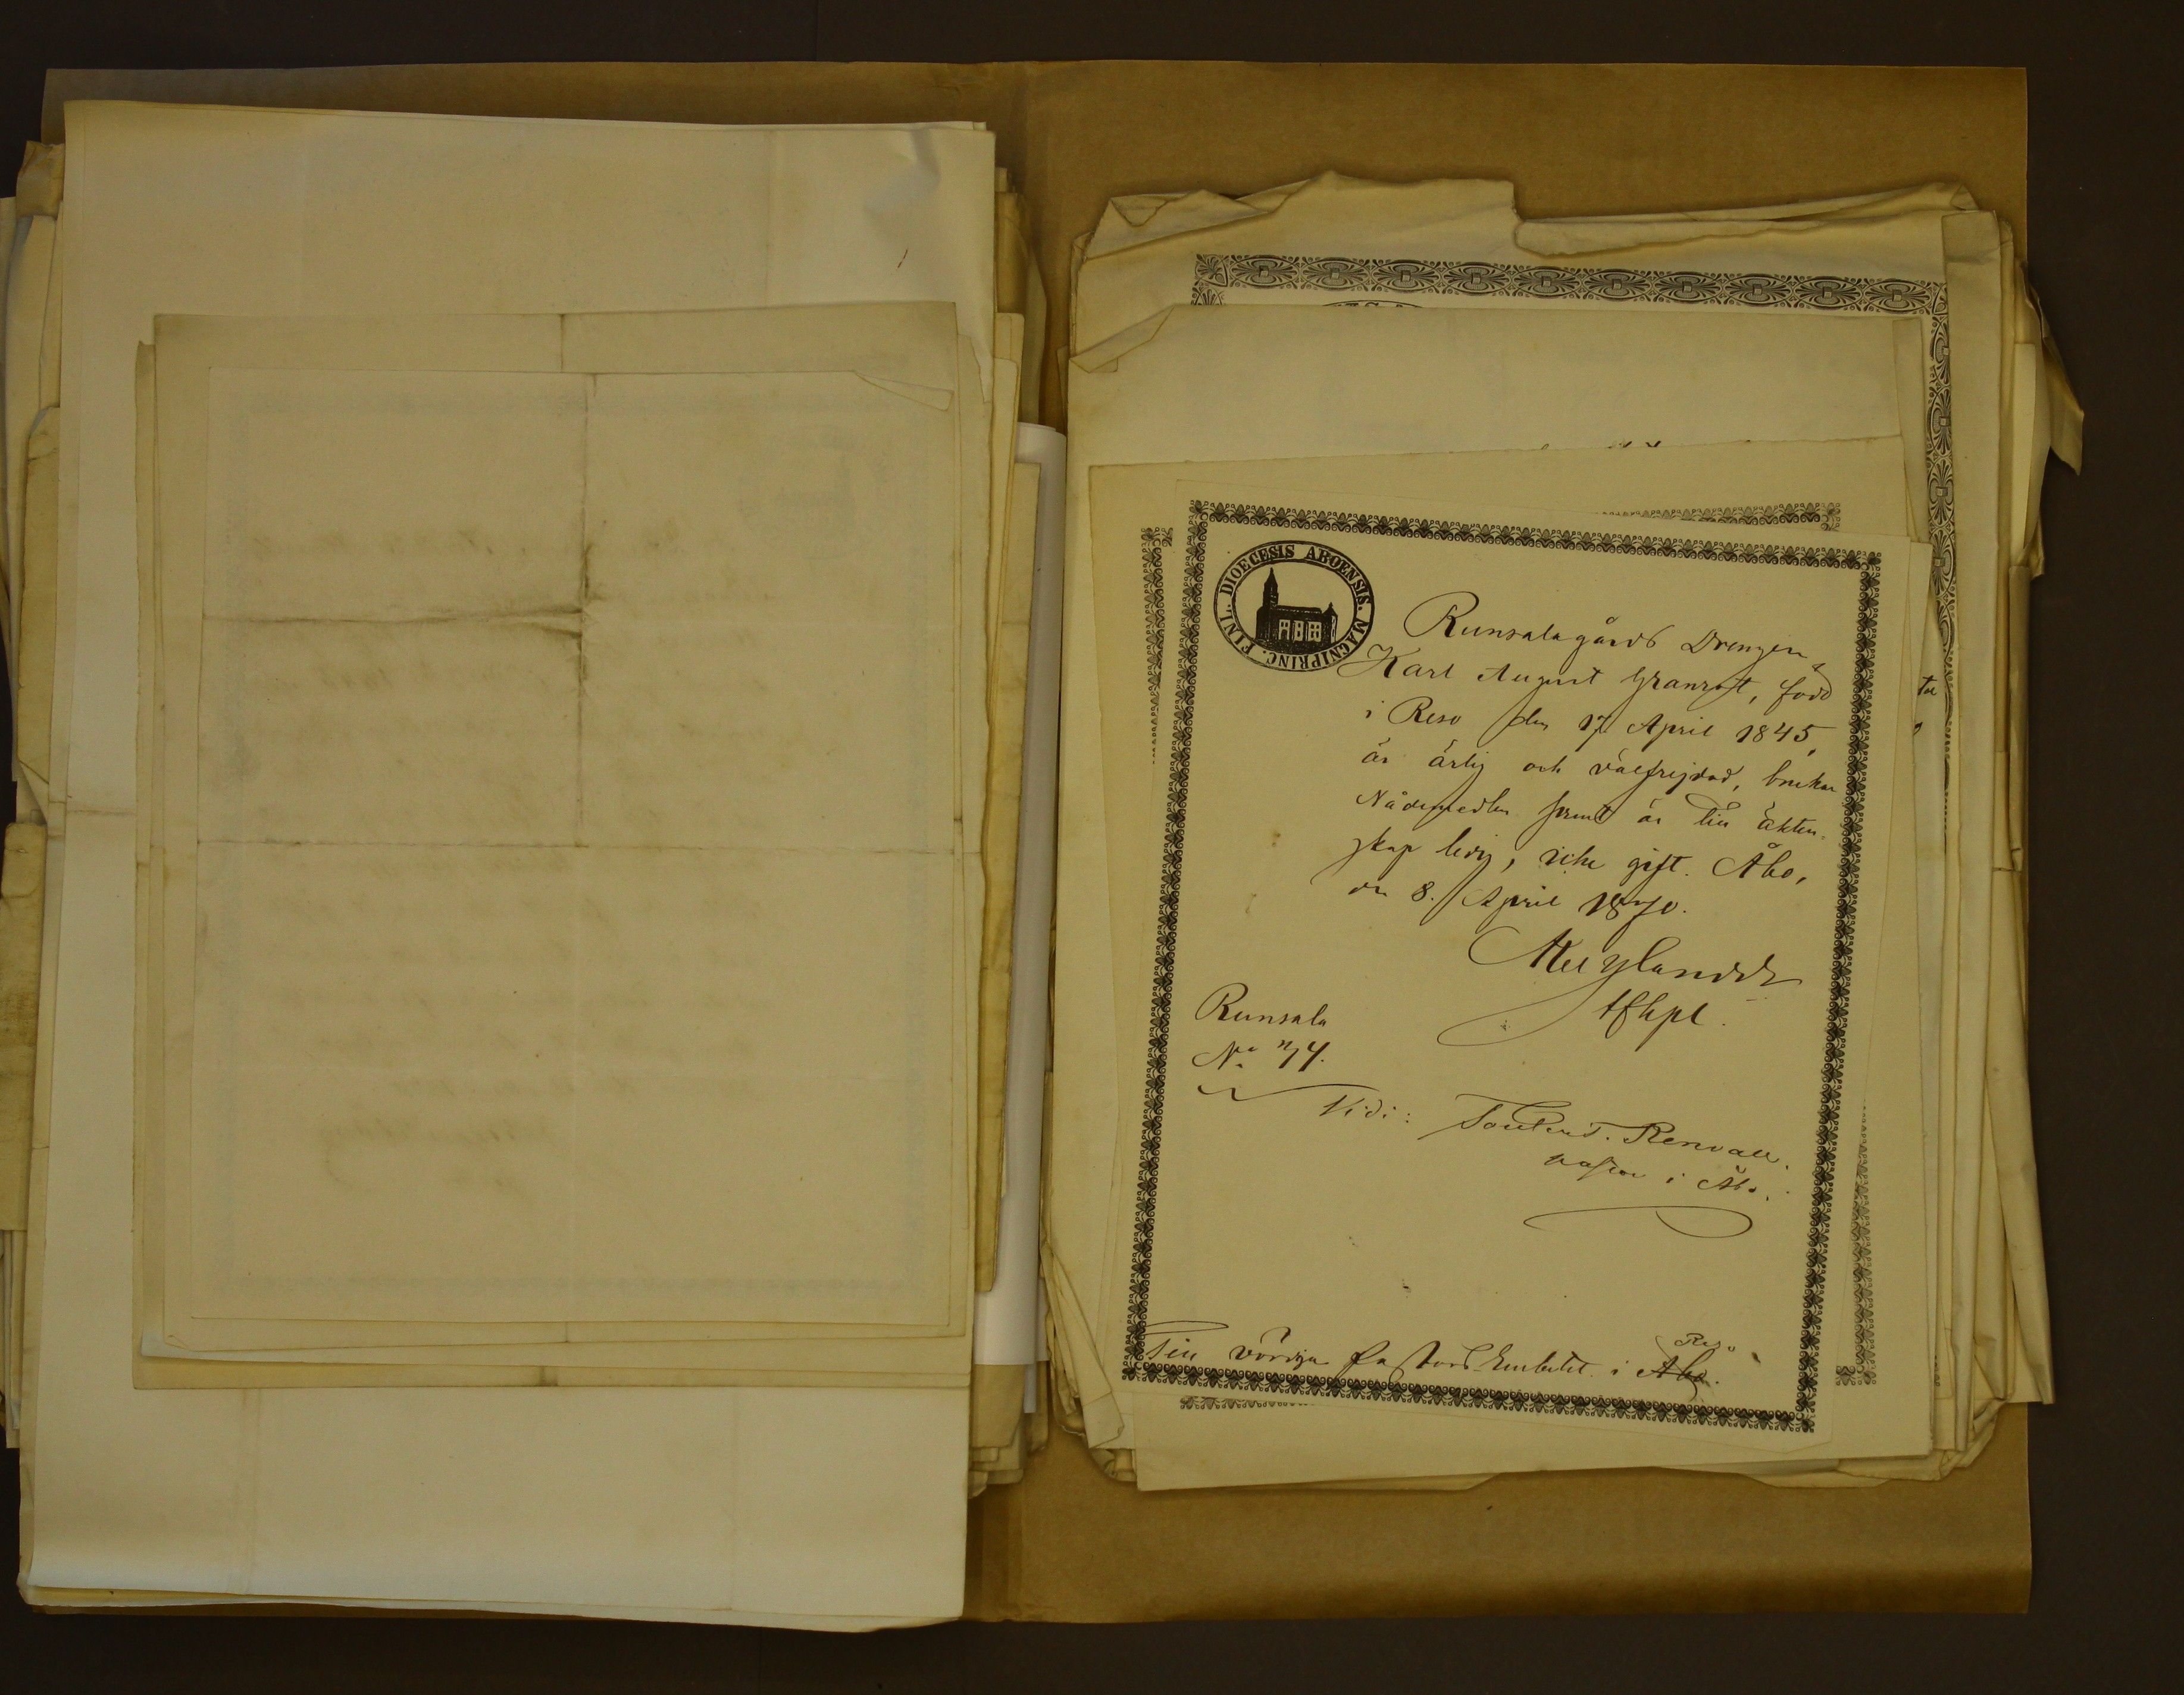 DIOECESIS ABOENSIS. MAGNIPRINC. FINL.
Runsala gårds Drengen
Karl August Granrot, född
i Reso den 17 April 1845,
är ärlig och välfrejdad, brukar
Nådemedlen samt är till äkten-
skap ledig, icke gift. Åbo,
den 8. April 1870.
Runsala
No
Vidi: Renvall.
Pastor i Åbo.
Reso
Till vördiga Pastors Embetet i Åbo.